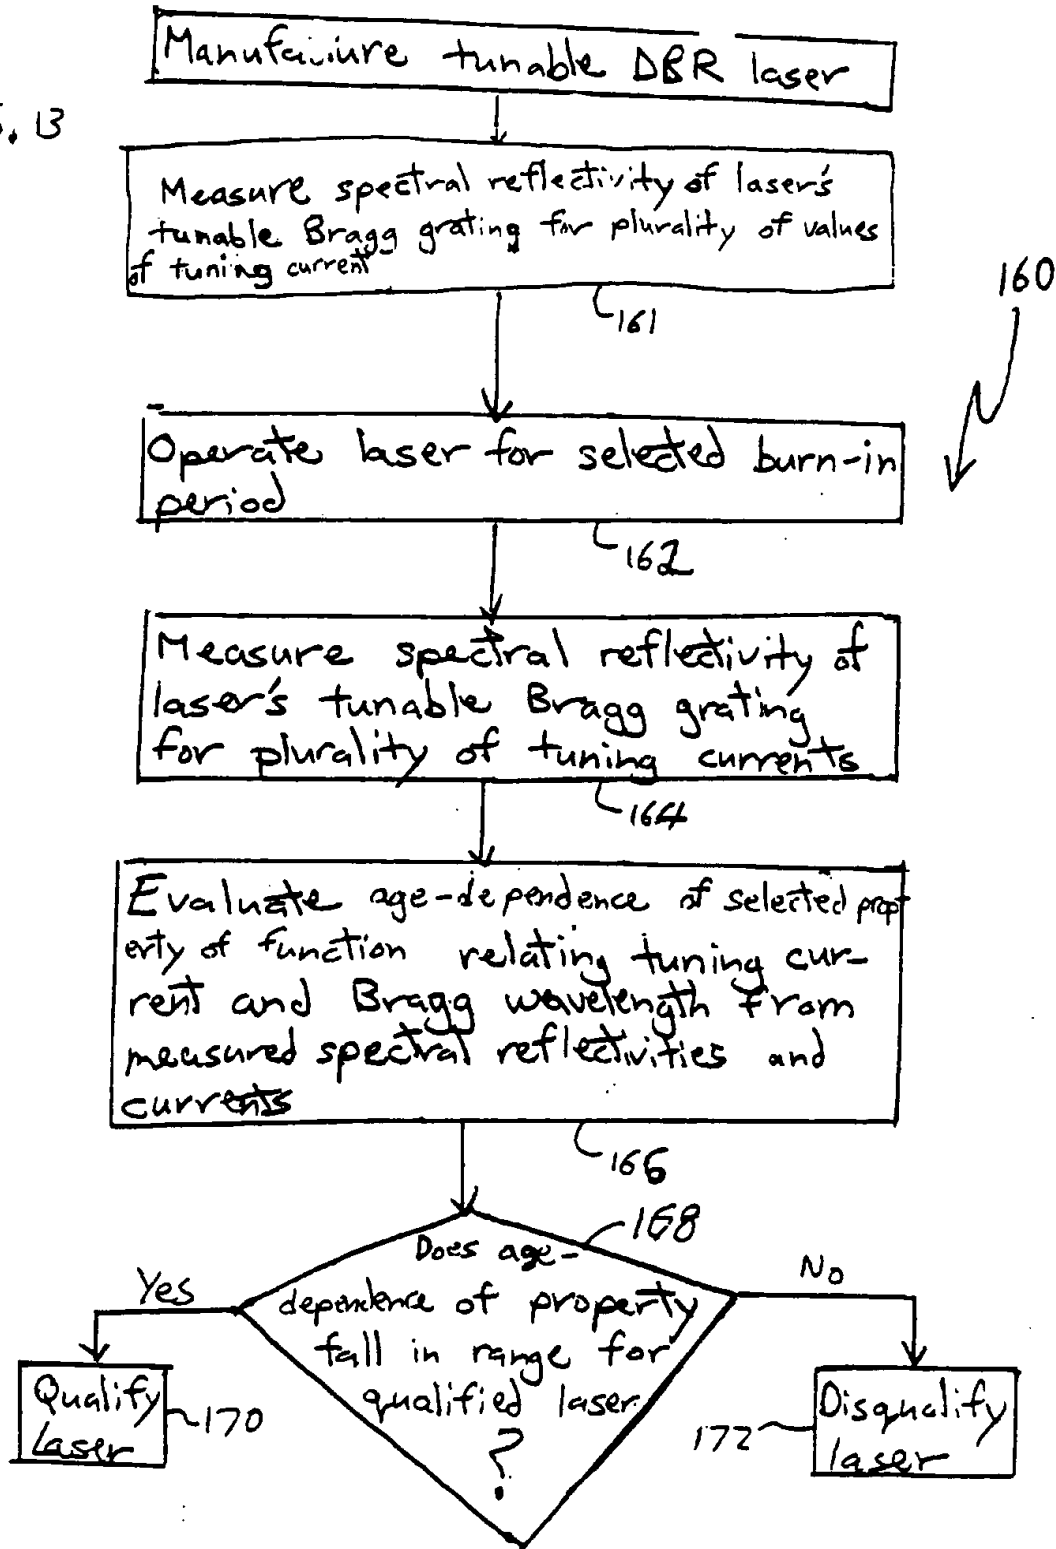 Manufacture tunable DBR laser
. 13
Measure spectral reflectivity of laser's
tunable Bragg grating for plurality of values
of tuning current
160
161
Operate laser for selected burn-in
period
162
Measure spectral reflectivity of
laser's tunable Bragg grating
for plurality of tuning currents
164
Evaluate age-dependence of selected prop-
erty of function relating tuning cur-
rent and Bragg wavelength from
measured spectral reflectivities and
currents
166
168
Does age-
dependence of property
fall in range for
qualified laser
?
Yes
No
Qualify
laser
170
172
Disqualify
laser